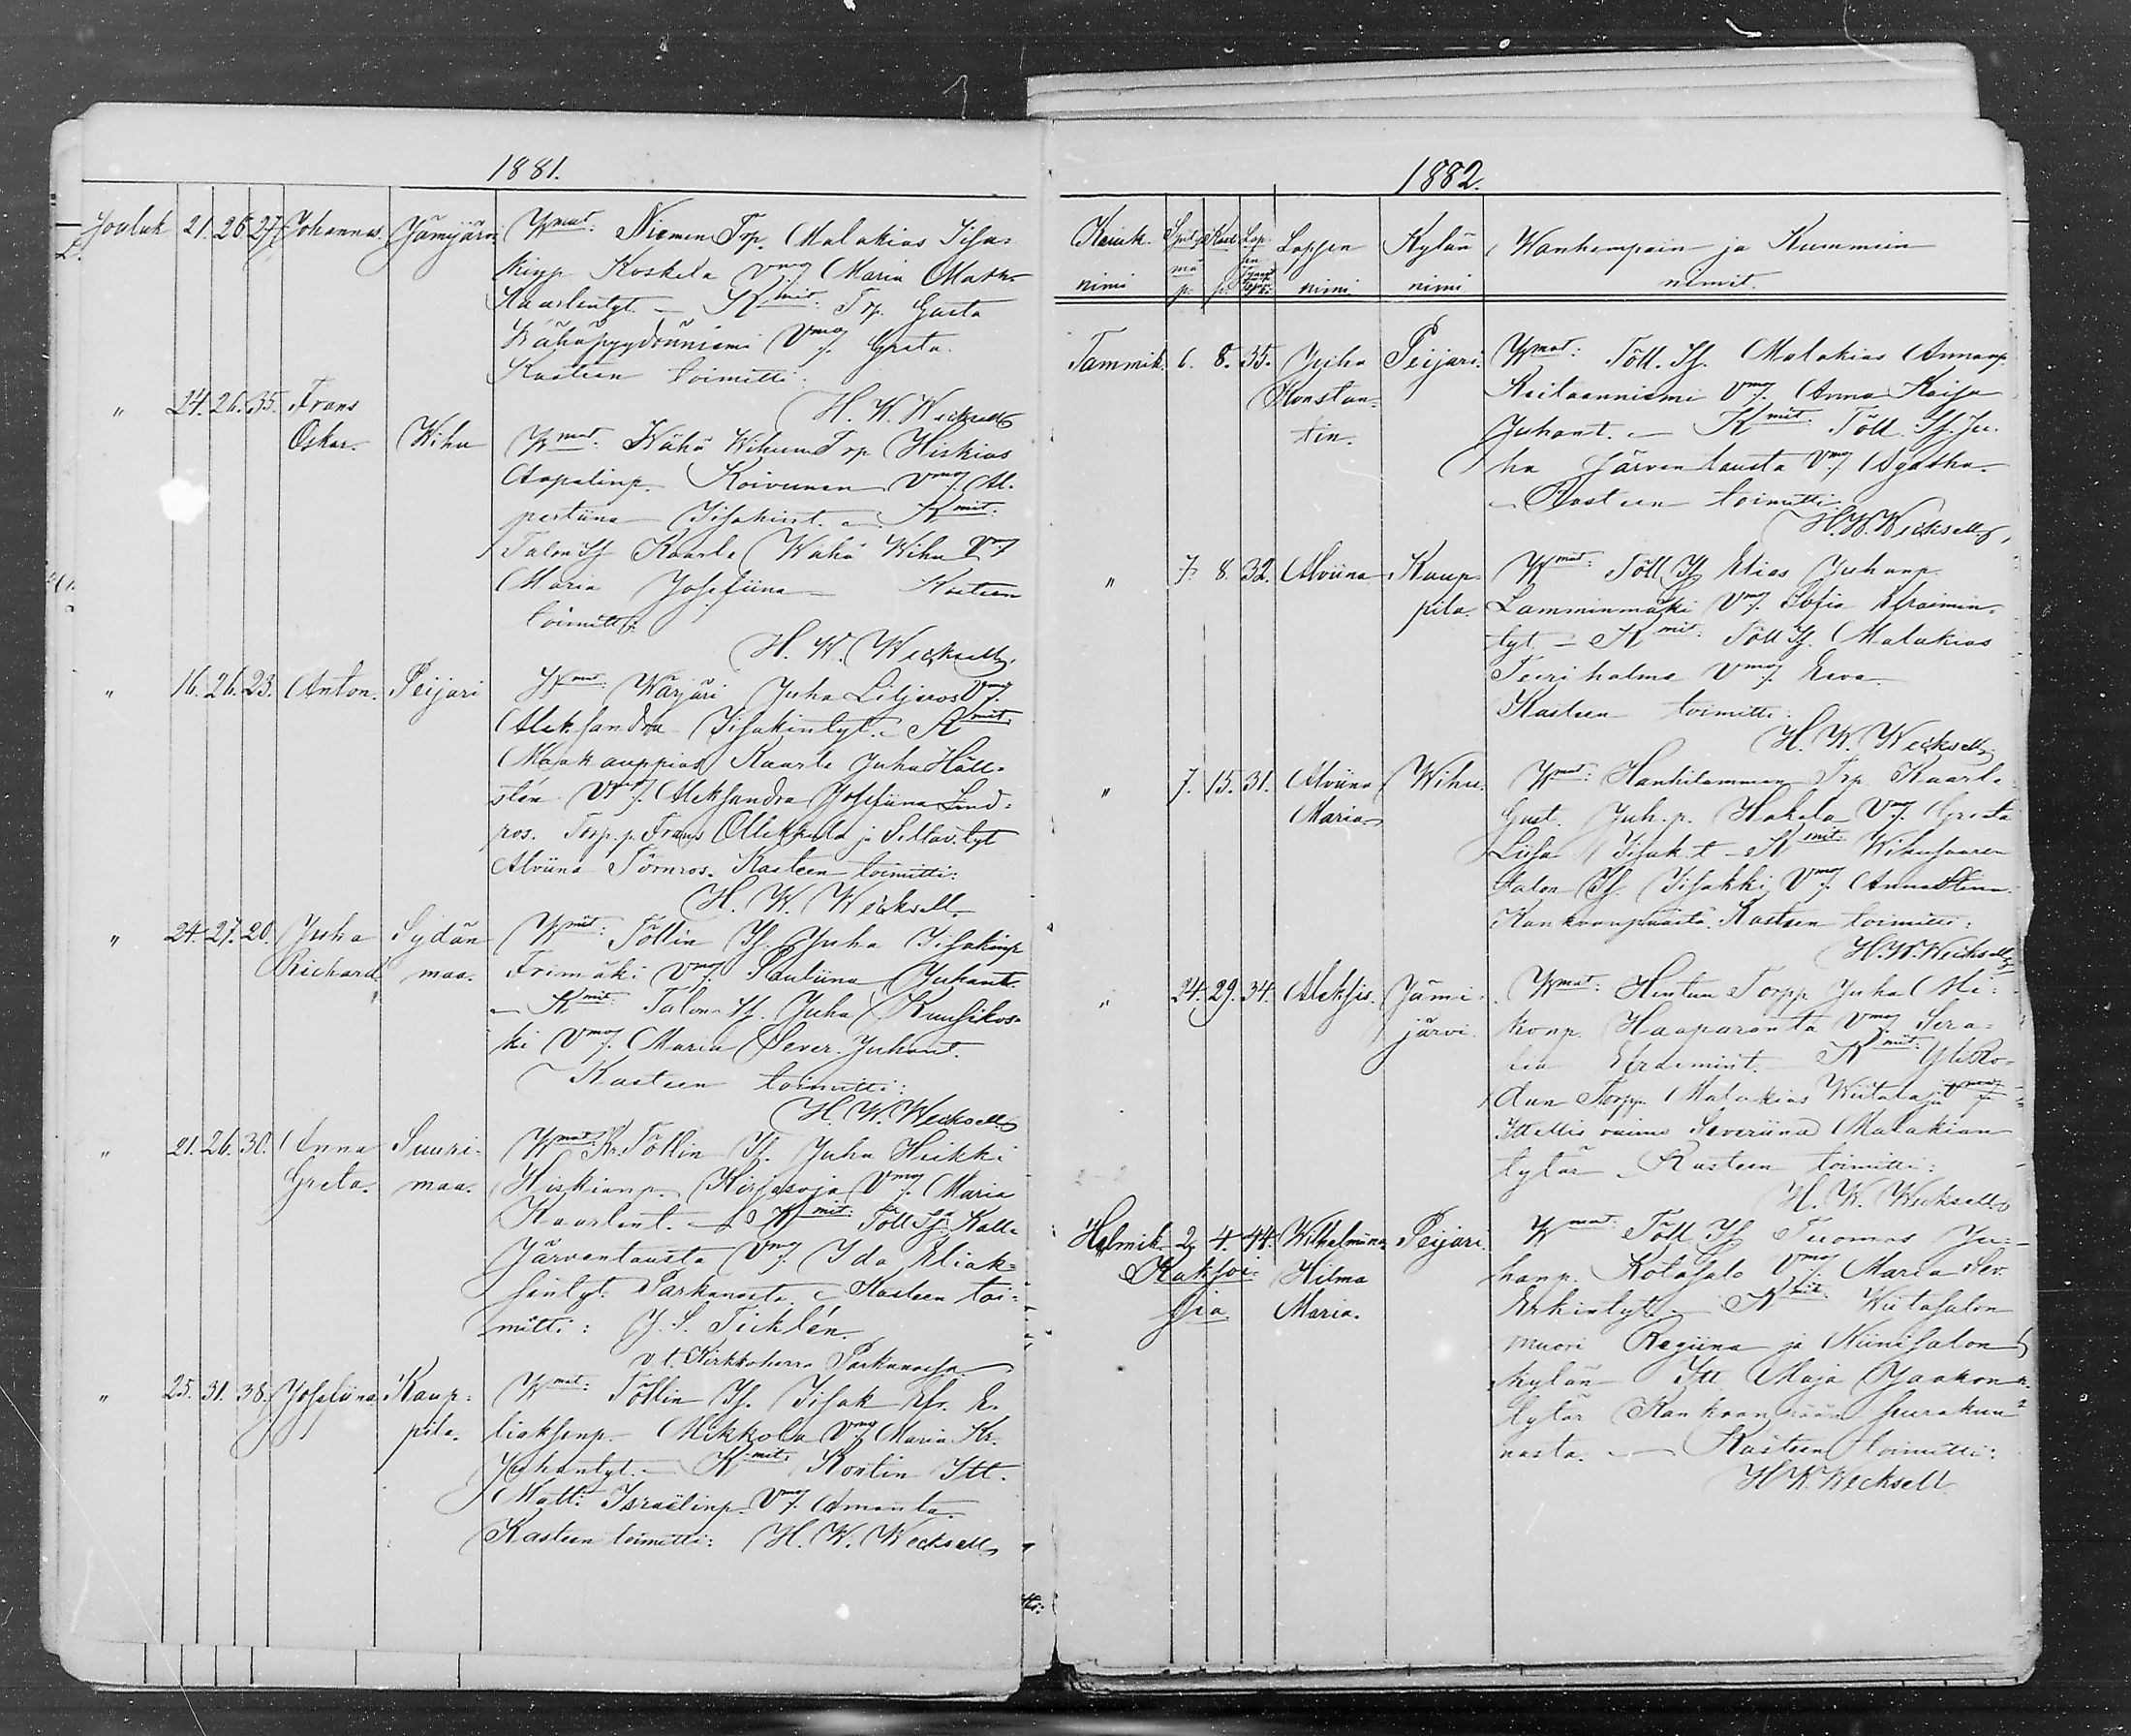 1881.
Jouluk 21. 26 27. Johannes. Jämijärvi Wmat. Niemen Trp. Malakias Iisa-
kinp. Koskela Vmoj Maria Math.
Kaarlentyt. — Kmit. Trp. Gusta
Wähäpyydönniemi Vmoj. Greta.
Kasteen toimitti:
H. W. Wecksell
" 24. 26. 35. Frans
Oskar. Wihu Wmat. Wähä Wihun Trp Hiskias
Aapelinp. Koivunen Vmoj. Al-
pertiina Iisakint. — Kmit.
Talon If Kaarle Wähä Wihu Vmoj
Maria Josefiina — Kasteen
toimitti:
H. W. Wecksell
" 16. 26. 23. Anton. Peijari Wmat. Wärjäri Juha Liljeros Vmoj.
Aleksandra Iisakintyt. — Kmit.
Maakauppias Kaarle Juha Häll-
stén Vmoj. Aleksandra Josefiina Lind-
ros. Torp. p. Frans Ollikkala ja Siltav. tyt
Alviina Törnros. Kasteen toimitti:
H. W. Wecksell
" 24. 27. 20. Juha
Richard. Sydän
maa. Wmat: Töllin If. Juha Iisakinp
Frimäki Vmoj. Pauliina Juhant.
— Kmit. Talon If. Juha Kuusikos-
ki Vmoj. Maria Sever. Juhant.
Kasteen toimitti:
H. W. Wecksell
" 21. 26. 30. Anna
Greta. Suuri-
maa. Wmat. Kr. Töllin If. Juha Heikki
Hiskianp. Kirjasoja Vmoj. Maria
Kaarlent. — Kmit. Töll If. Kalle
Järventausta Vmoj. Ida Eliak-
sentyt. Parkanosta. — Kasteen toi-
mitti: J. S. Ticklén.
v. t. Kirkkoherra Parkanossa
" 25. 31. 38. Josefiina Kaup-
pila. Wmat: Töllin If. Iisak Efr. E-
liaksenp. Mikkola Vmoj Maria Kr.
Juhantyt. — Kmit. Kortin Itt.
Matti Israelinp. Vmoj. Amanta.
Kasteen toimitti: H. W. Wecksell
1882.
Kuuk. Synt. Kast. Lap- Lapsen Kylän Wanhempain ja Kummein
nimi p. p. nimi. nimi nimit.
Tammik. 6. 8. 35. Juha
Konstan-
tin. Peijari. Wmat: Töll. If. Malakias Annanp.
Raitaanniemi Vmoj. Anna Kaisa
Juhant. — Kmit. Töll. If. Ju-
ha Järventausta Vmoj. Agatha.
— Kasteen toimitti
H. W. Wecksell
" 7. 8. 32. Alviina Kaup-
pila. Wmat: Töll If Elias Juhanp.
Lamminmäki Vmoj. Sofia Efraimin-
tyt. — Kmit. Töll If. Malakias
Teeriholma Vmoj. Eeva.
Kasteen toimitti:
H. W. Wecksell
" 7. 15. 31. Alviina
Maria. Wihu. Wmat: Hankilamman Trp. Kaarle
Gust. Juh. p. Hakala Vmoj. Greta
Liisa Iisak. t. — Kmit. Wihusaaren
talon If. Iisakki Vmoj. Anna Stiina
Kankaanpäästä. Kasteen toimitti:
H. W. Wecksell
" 24. 29. 34. Aleksis. Jämi-
järvi. Wmat: Hintun Torpp. Juha Mi-
konp. Haaparanta Vmoj. Sera-
fia Efraimint. — Kmit: Yli Ro-
dun Torpp. Malakias Wiitala ja
Itellis vaimo Severiina Malakian
tytär. — Kasteen toimitti:
H. W. Wecksell
Helmik. 2. 4. 44. Wilhelmiina Peijari. Wmat. Töll If Tuomas Ju-
Kaksoi- Hilma
sia Maria.
hanp. Kotasalo Vmoj. Maria Sev.
Erkintyt. — Kmit. Wiitasalon
muori Regiina ja Niinisalon
kylän Itt. Maja Jaakon
tytär Kankaanpään seurakun-
nasta. — Kasteen toimitti:
H. W. Wecksell